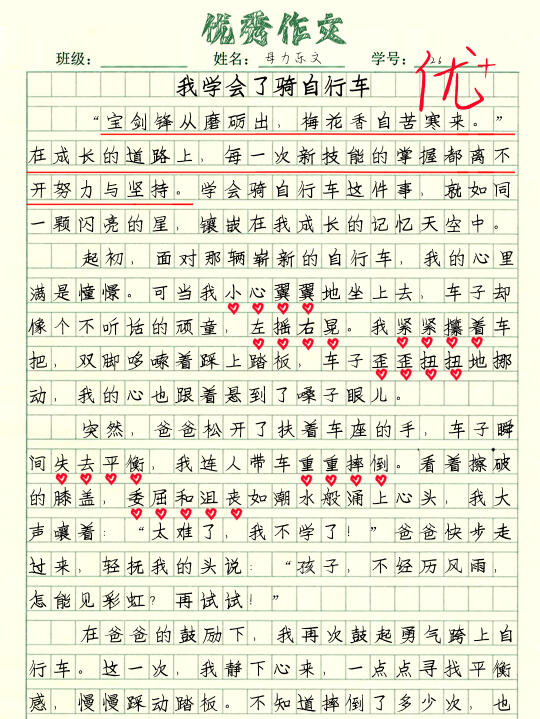 优秀作文
班级： 姓名：母力乐文 学号：26
优+
我学会了骑自行车
“宝剑锋从磨砺出，梅花香自苦寒来。”
在成长的道路上，每一次新技能的掌握都离不
开努力与坚持。学会骑自行车这件事，就如同
一颗闪亮的星，镶嵌在我成长的记忆天空中。
起初，面对那辆崭新的自行车，我的心里
满是憧憬。可当我小心翼翼地坐上去，车子却
像个不听话的顽童，左摇右晃。我紧紧攥着车
把，双脚哆嗦着踩上踏板，车子歪歪扭扭地挪
动，我的心也跟着悬到了嗓子眼儿。
突然，爸爸松开了扶着车座的手，车子瞬
间失去平衡，我连人带车重重摔倒。看着擦破
的膝盖，委屈和沮丧如潮水般涌上心头，我大
声嚷着：“太难了，我不学了！”爸爸快步走
过来，轻抚我的头说：“孩子，不经历风雨，
怎能见彩虹？再试试！”
在爸爸的鼓励下，我再次鼓起勇气跨上自
行车。这一次，我静下心来，一点点寻找平衡
感，慢慢踩动踏板。不知道摔倒了多少次，也